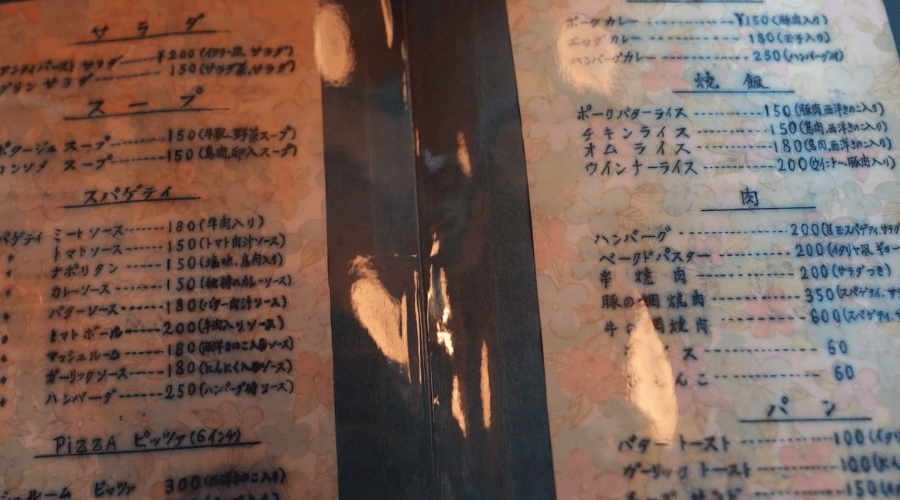 サラダ
アンティパースト サラダ------¥200(イタリー風 サラダ)
グリン サラダ------150(サラダ菜、サラダ)
スープ
ポタージュ スープ------150(牛乳、野菜スープ)
コンソメ スープ------150(鳥肉、卵入スープ)
スパゲティ
スパゲティ ミートソース------180(牛肉入り)
〃 トマトソース------150(トマト肉汁ソース)
〃 ナポリタン------150(塩味、鳥肉入り)
〃 カレーソース------150(独特のカレーソース)
〃 バターソース------180(バター肉汁ソース)
〃 ミートボール------200(牛肉入り、ソース)
〃 マッシュルーム------180(西洋きのこ入りソース)
〃 ガーリックソース------180(にんにく入りソース)
〃 ハンバーグ------250(ハンバーグ ソース)
PiZZA ピッツァ(6インチ)
シュルーム ピッツァ 300(西洋きのこ入り)
ポークカレー------¥150(豚肉入り)
エッグカレー------180(玉子入り)
ハンバーグカレー------250(ハンバーグ付)
焼飯
ポークバターライス------150(豚肉、西洋きのこ入り)
チキンライス------150(鳥肉、西洋きのこ入り)
オムライス------180(鳥肉、西洋きのこ入り)
ウインナーライス------200(ウインナー、豚肉入り)
肉
ハンバーグ------200(スパゲティ、サラダ
ベークドパスター------200(イタリヤ風、ギョー
串焼肉------200(サラダつき)
豚の網焼肉------350(スパゲティ、サ
牛の網焼肉------600(スパゲティ、
ス------60
んこ------60
パン
バタートースト------100(イタ
ガーリックトースト------100(にん
チーズ サラダ------150(